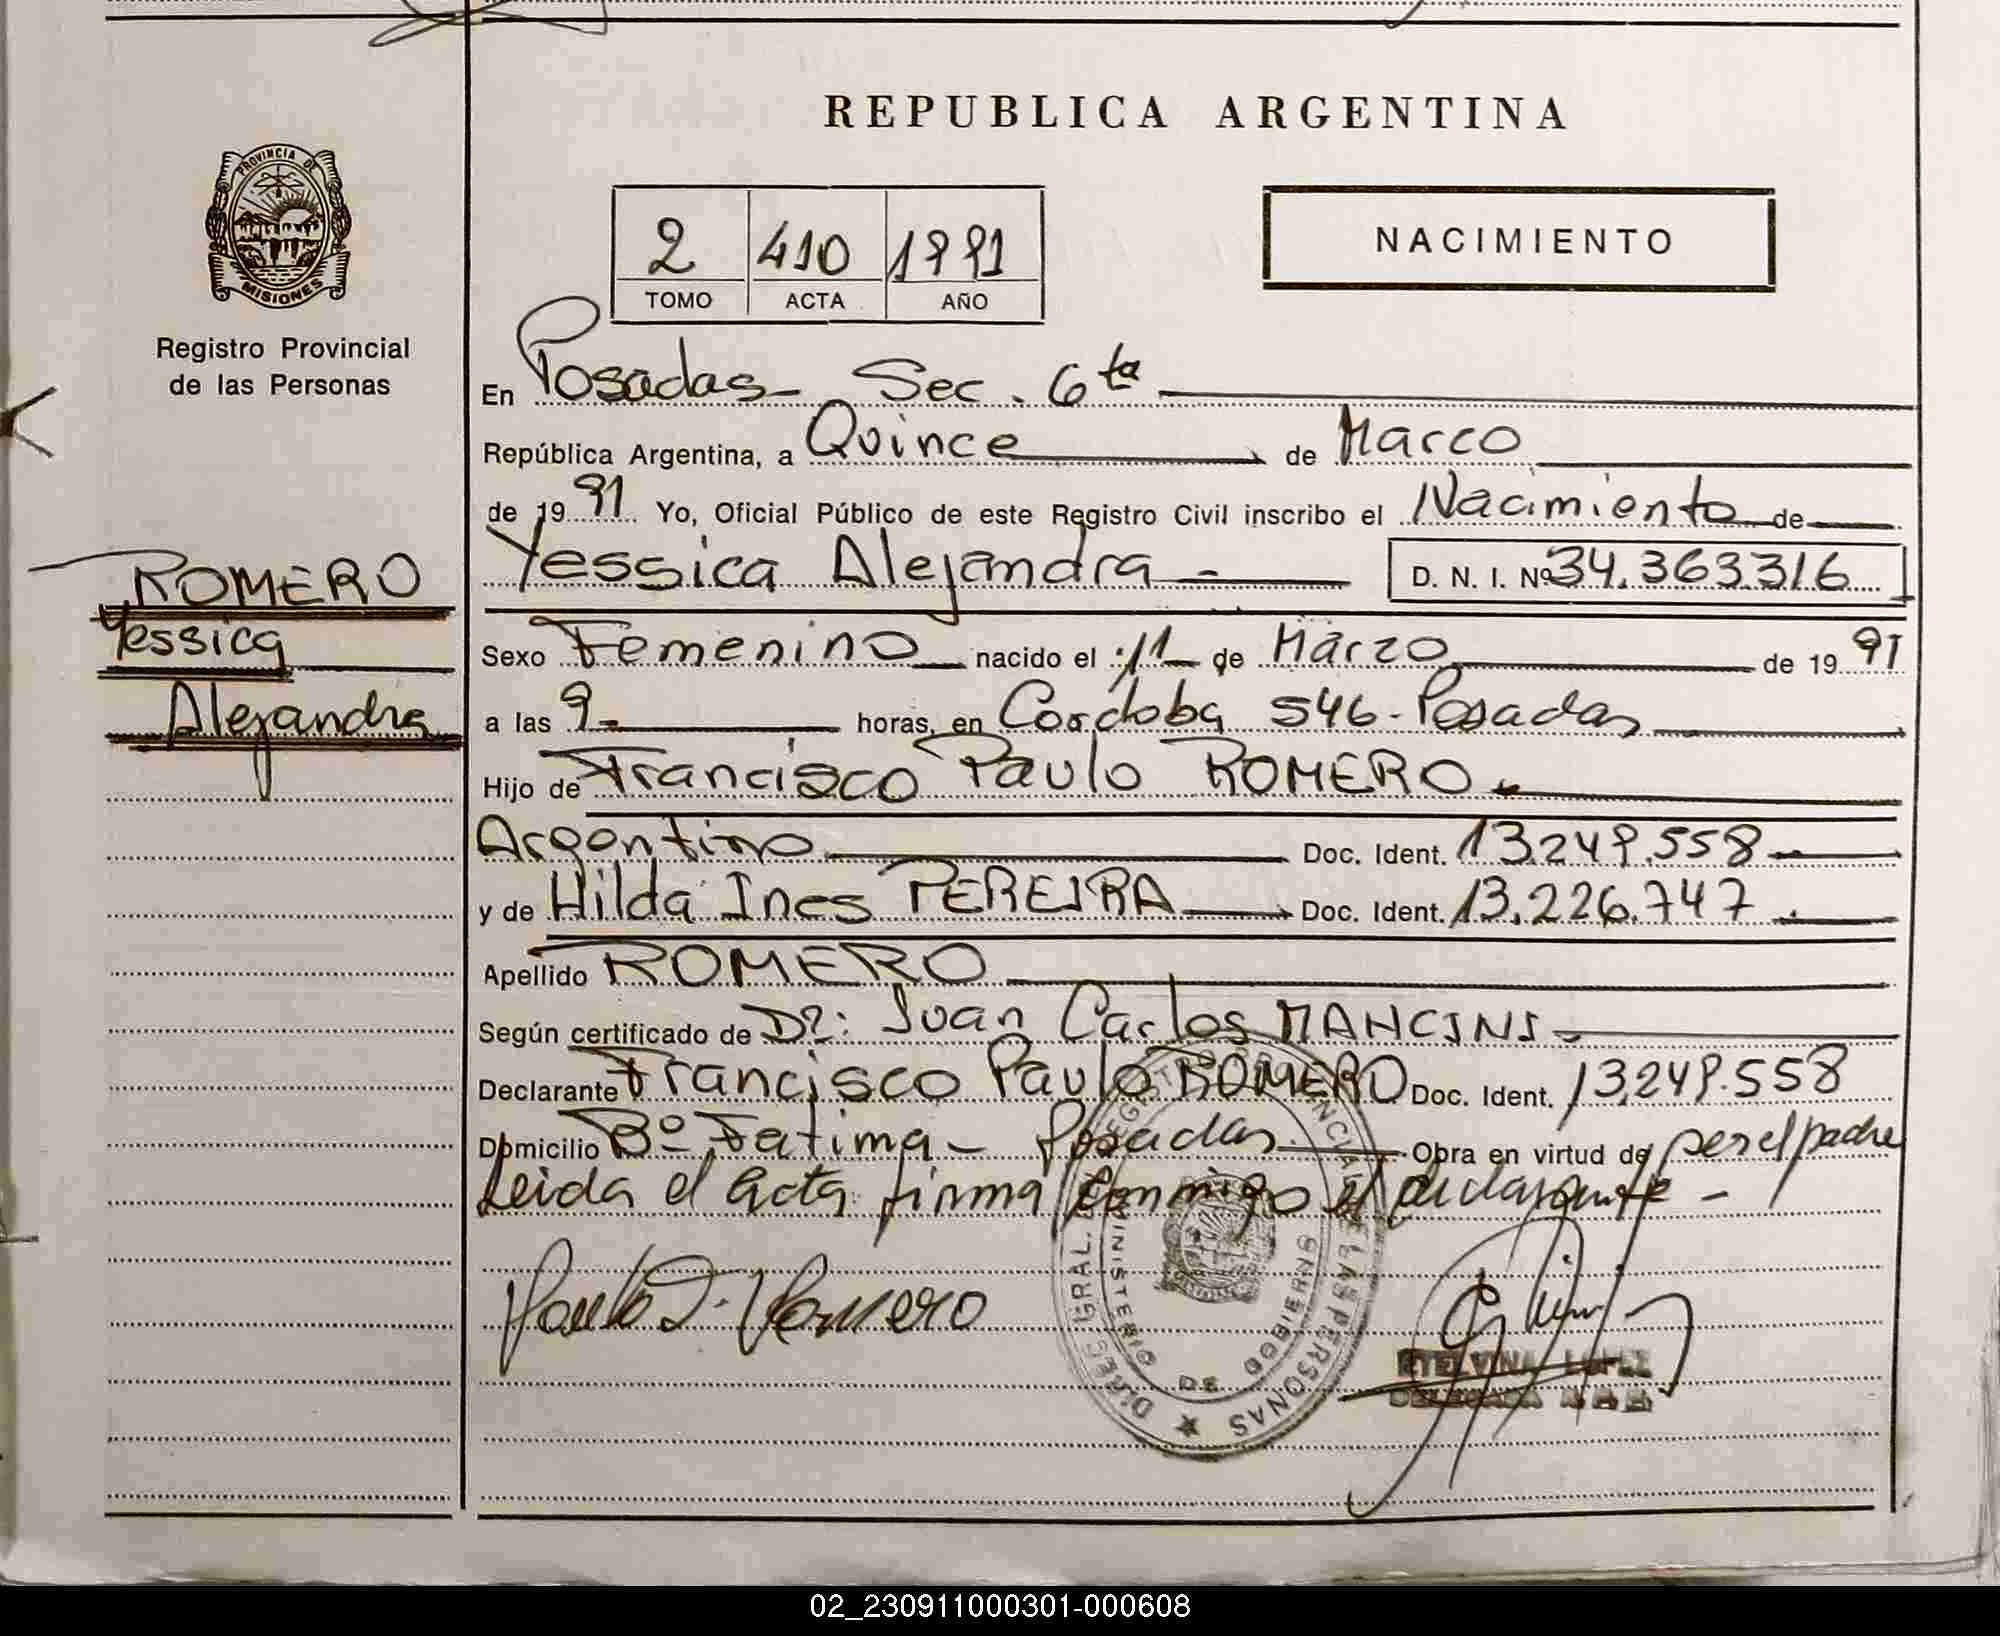 REPUBLICA ARGENTINA
PROVINCIA DE
MISIONES
Registro Provincial
de las Personas
2 410 1991
TOMO ACTA AÑO
NACIMIENTO
En Posadas - Sec. 6ta
República Argentina, a Quince de Marco
de 1991 Yo, Oficial Público de este Registro Civil inscribo el Nacimiento de
Yessica Alejandra - D. N. I. Nº 34.363316
ROMERO
Yessica
Alejandra
Sexo Femenino nacido el 11 de Marzo de 1991
a las 9 horas, en Cordoba 546 - Posadas
Hijo de Francisco Paulo ROMERO
Argentino Doc. Ident. 13.249.558
y de Hilda Ines PEREIRA Doc. Ident. 13.226.747
Apellido ROMERO
Según certificado de Dr: Juan Carlos MANCINI
Declarante Francisco Paulo ROMERO Doc. Ident. 13.249.558
Domicilio Bº Fatima - Posadas Obra en virtud de ser el padre
Leida el Acta firma conmigo el declarante -
Paulo F. Romero
DIREC. GRAL. DEL REGISTRO PROVINCIAL DE LAS PERSONAS
MINISTERIO DE GOBIERNO
ETELVINA LOPEZ
02_230911000301-000608